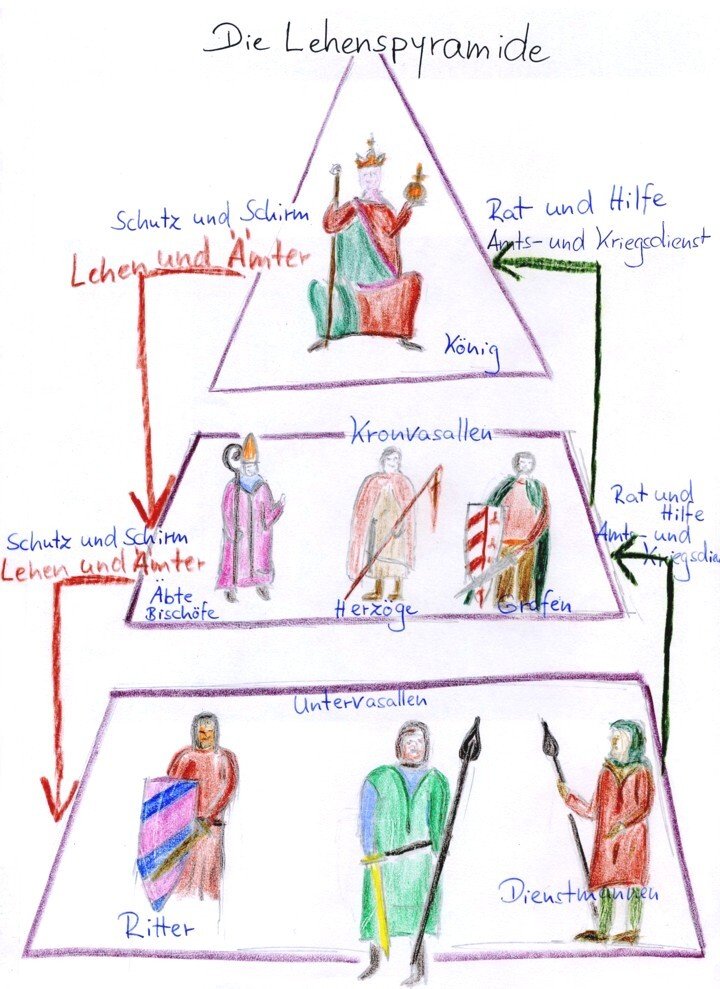 Die Lehenspyramide
Schutz und Schirm
Lehen und Ämter
Rat und Hilfe
Amts- und Kriegsdienst
König
Kronvasallen
Schutz und Schirm
Lehen und Ämter
Rat und
Hilfe
Amts- und
Kriegsdie
Äbte
Bischöfe
Herzöge
Grafen
Untervasallen
Ritter
Dienstmannen